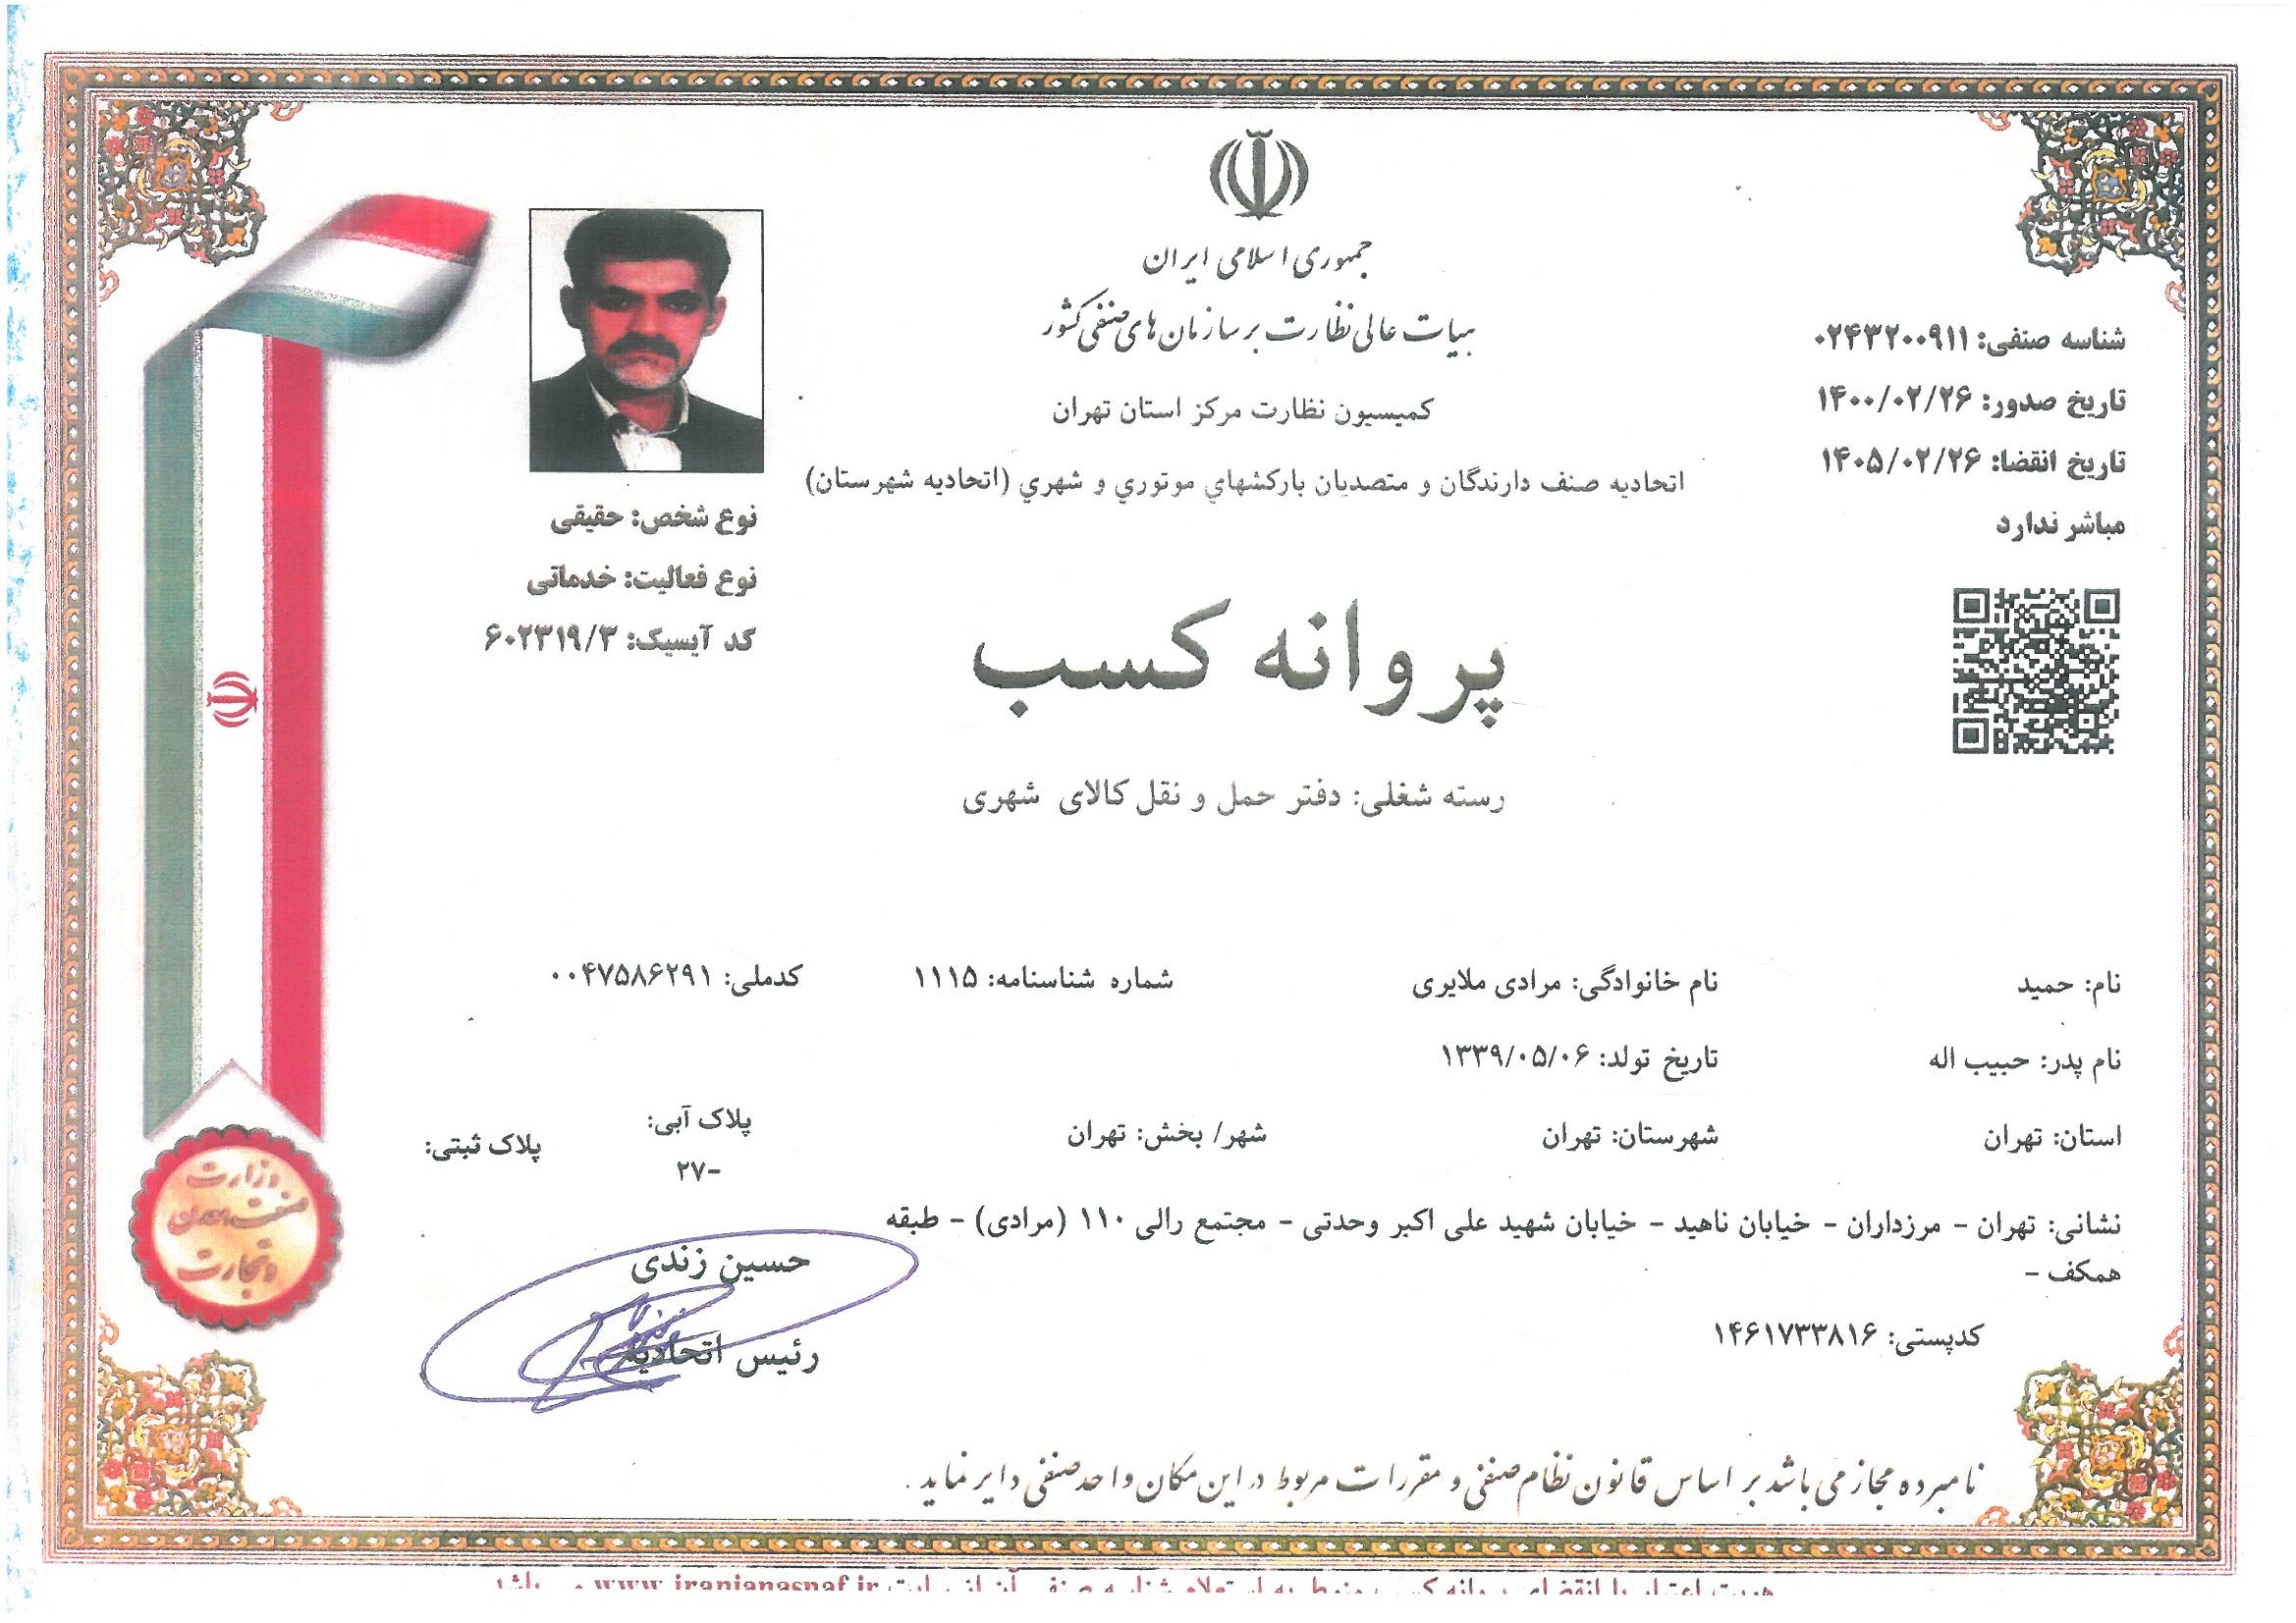 جمهوری اسلامی ایران
هیات عالی نظارت بر سازمان های صنفی کشور
کمیسیون نظارت مرکز استان تهران
اتحادیه صنف دارندگان و متصدیان بارکشهاي موتوري و شهري (اتحادیه شهرستان)
شناسه صنفی: ۰۲۴۳۲۰۰۹۱۱
تاریخ صدور: ۱۴۰۰/۰۲/۲۶
تاریخ انقضا: ۱۴۰۵/۰۲/۲۶
مباشر ندارد
نوع شخص: حقیقی
نوع فعالیت: خدماتی
کد آیسیک: ۶۰۲۳۱۹/۳
پروانه کسب
رسته شغلی: دفتر حمل و نقل کالای شهری
نام: حمید نام خانوادگی: مرادی ملایری شماره شناسنامه: ۱۱۱۵ کدملی: ۰۰۴۷۵۸۶۲۹۱
نام پدر: حبیب اله تاریخ تولد: ۱۳۳۹/۰۵/۰۶
استان: تهران شهرستان: تهران شهر/ بخش: تهران پلاک آبی: پلاک ثبتی:
۲۷-
نشانی: تهران - مرزداران - خیابان ناهید - خیابان شهید علی اکبر وحدتی - مجتمع رالی ۱۱۰ (مرادی) - طبقه
همکف -
کدپستی: ۱۴۶۱۷۳۳۸۱۶
حسین زندی
رئیس اتحادیه
وزارت
صنعت، معدن
و تجارت
نامبرده مجاز می باشد بر اساس قانون نظام صنفی و مقررات مربوط در این مکان واحد صنفی دایر نماید.
www.iranianasnaf.ir